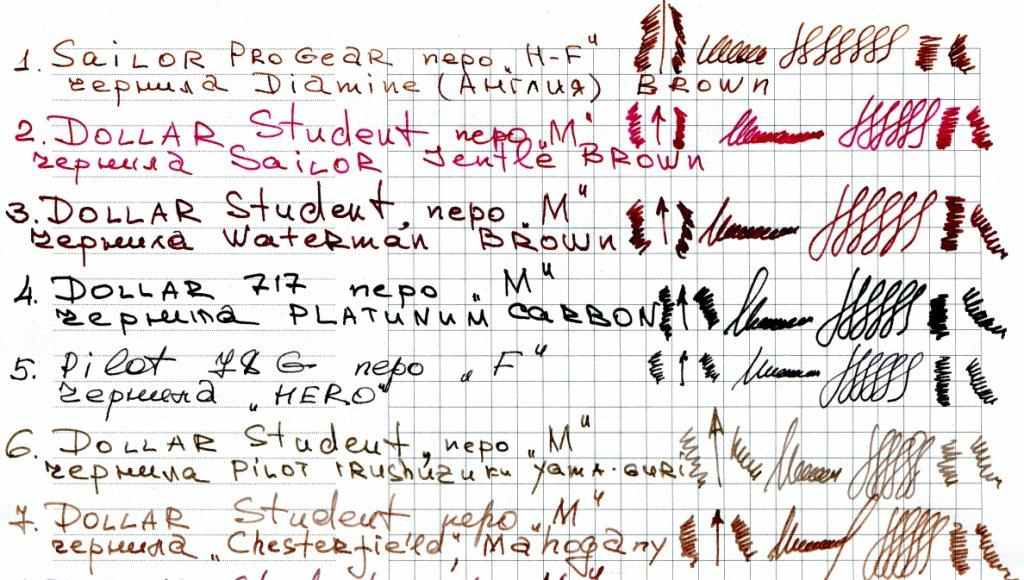 1. Sailor Pro Gear перо „H-F"
чернила Diamine (Англия) Brown
2. Dollar Student перо „M"
чернила Sailor Jentle Brown
3. Dollar Student, перо „M"
чернила Waterman Brown
4. Dollar 717 перо „M"
чернила PLATUNUM CARBON
5. Pilot 78 G перо „F"
чернила „HERO"
6. Dollar Student, перо „M"
чернила Pilot Irushuzuku Yama-guri
7. Dollar Student перо „M"
чернила „Chesterfield", Mahogany